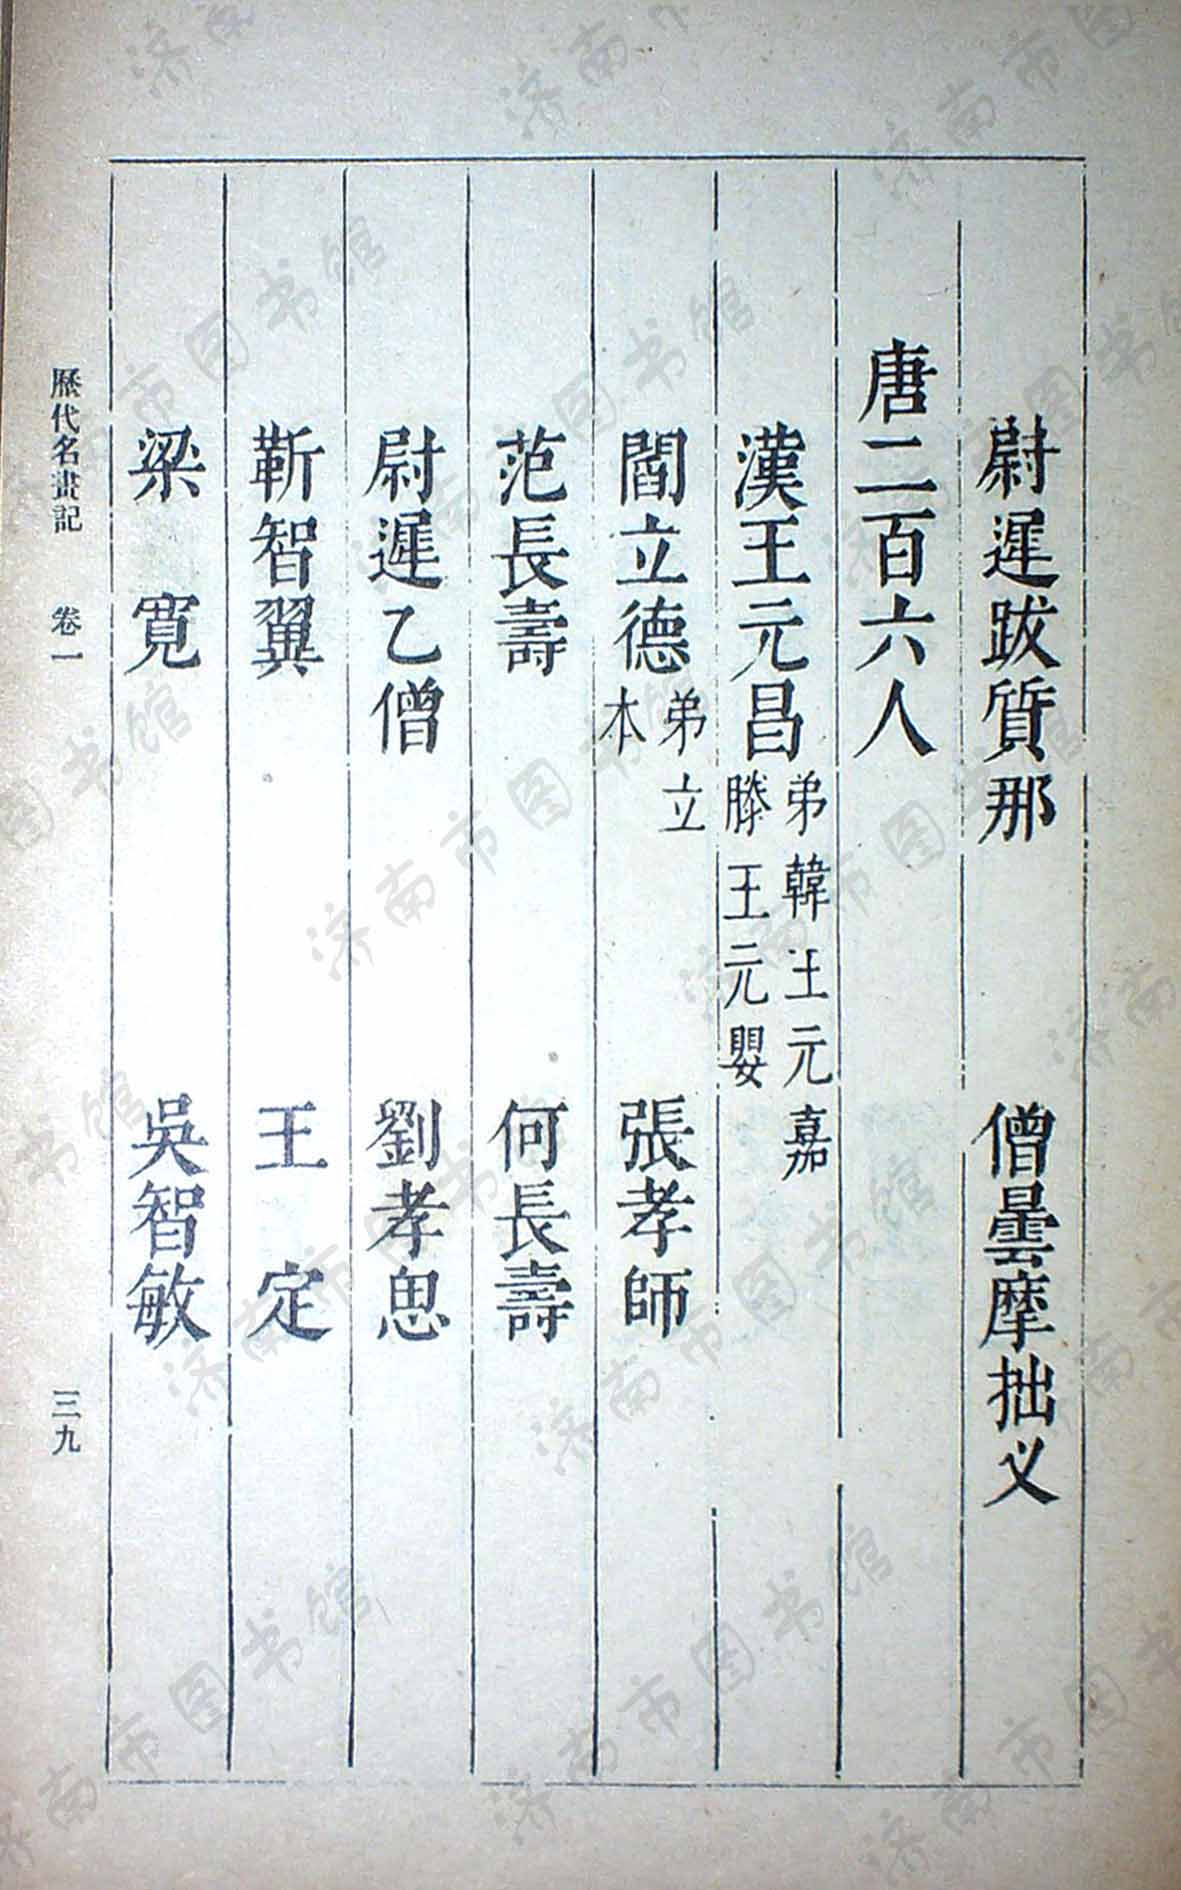 尉遲跋質那 僧曇摩拙义
唐二百六人
漢王元昌 弟韓王元嘉
滕王元嬰
閻立德 弟立
本 張孝師
范長壽 何長壽
尉遲乙僧 劉孝思
靳智翼 王定
梁寬 吳智敏
歷代名畫記 卷一 三九
济南市图书馆